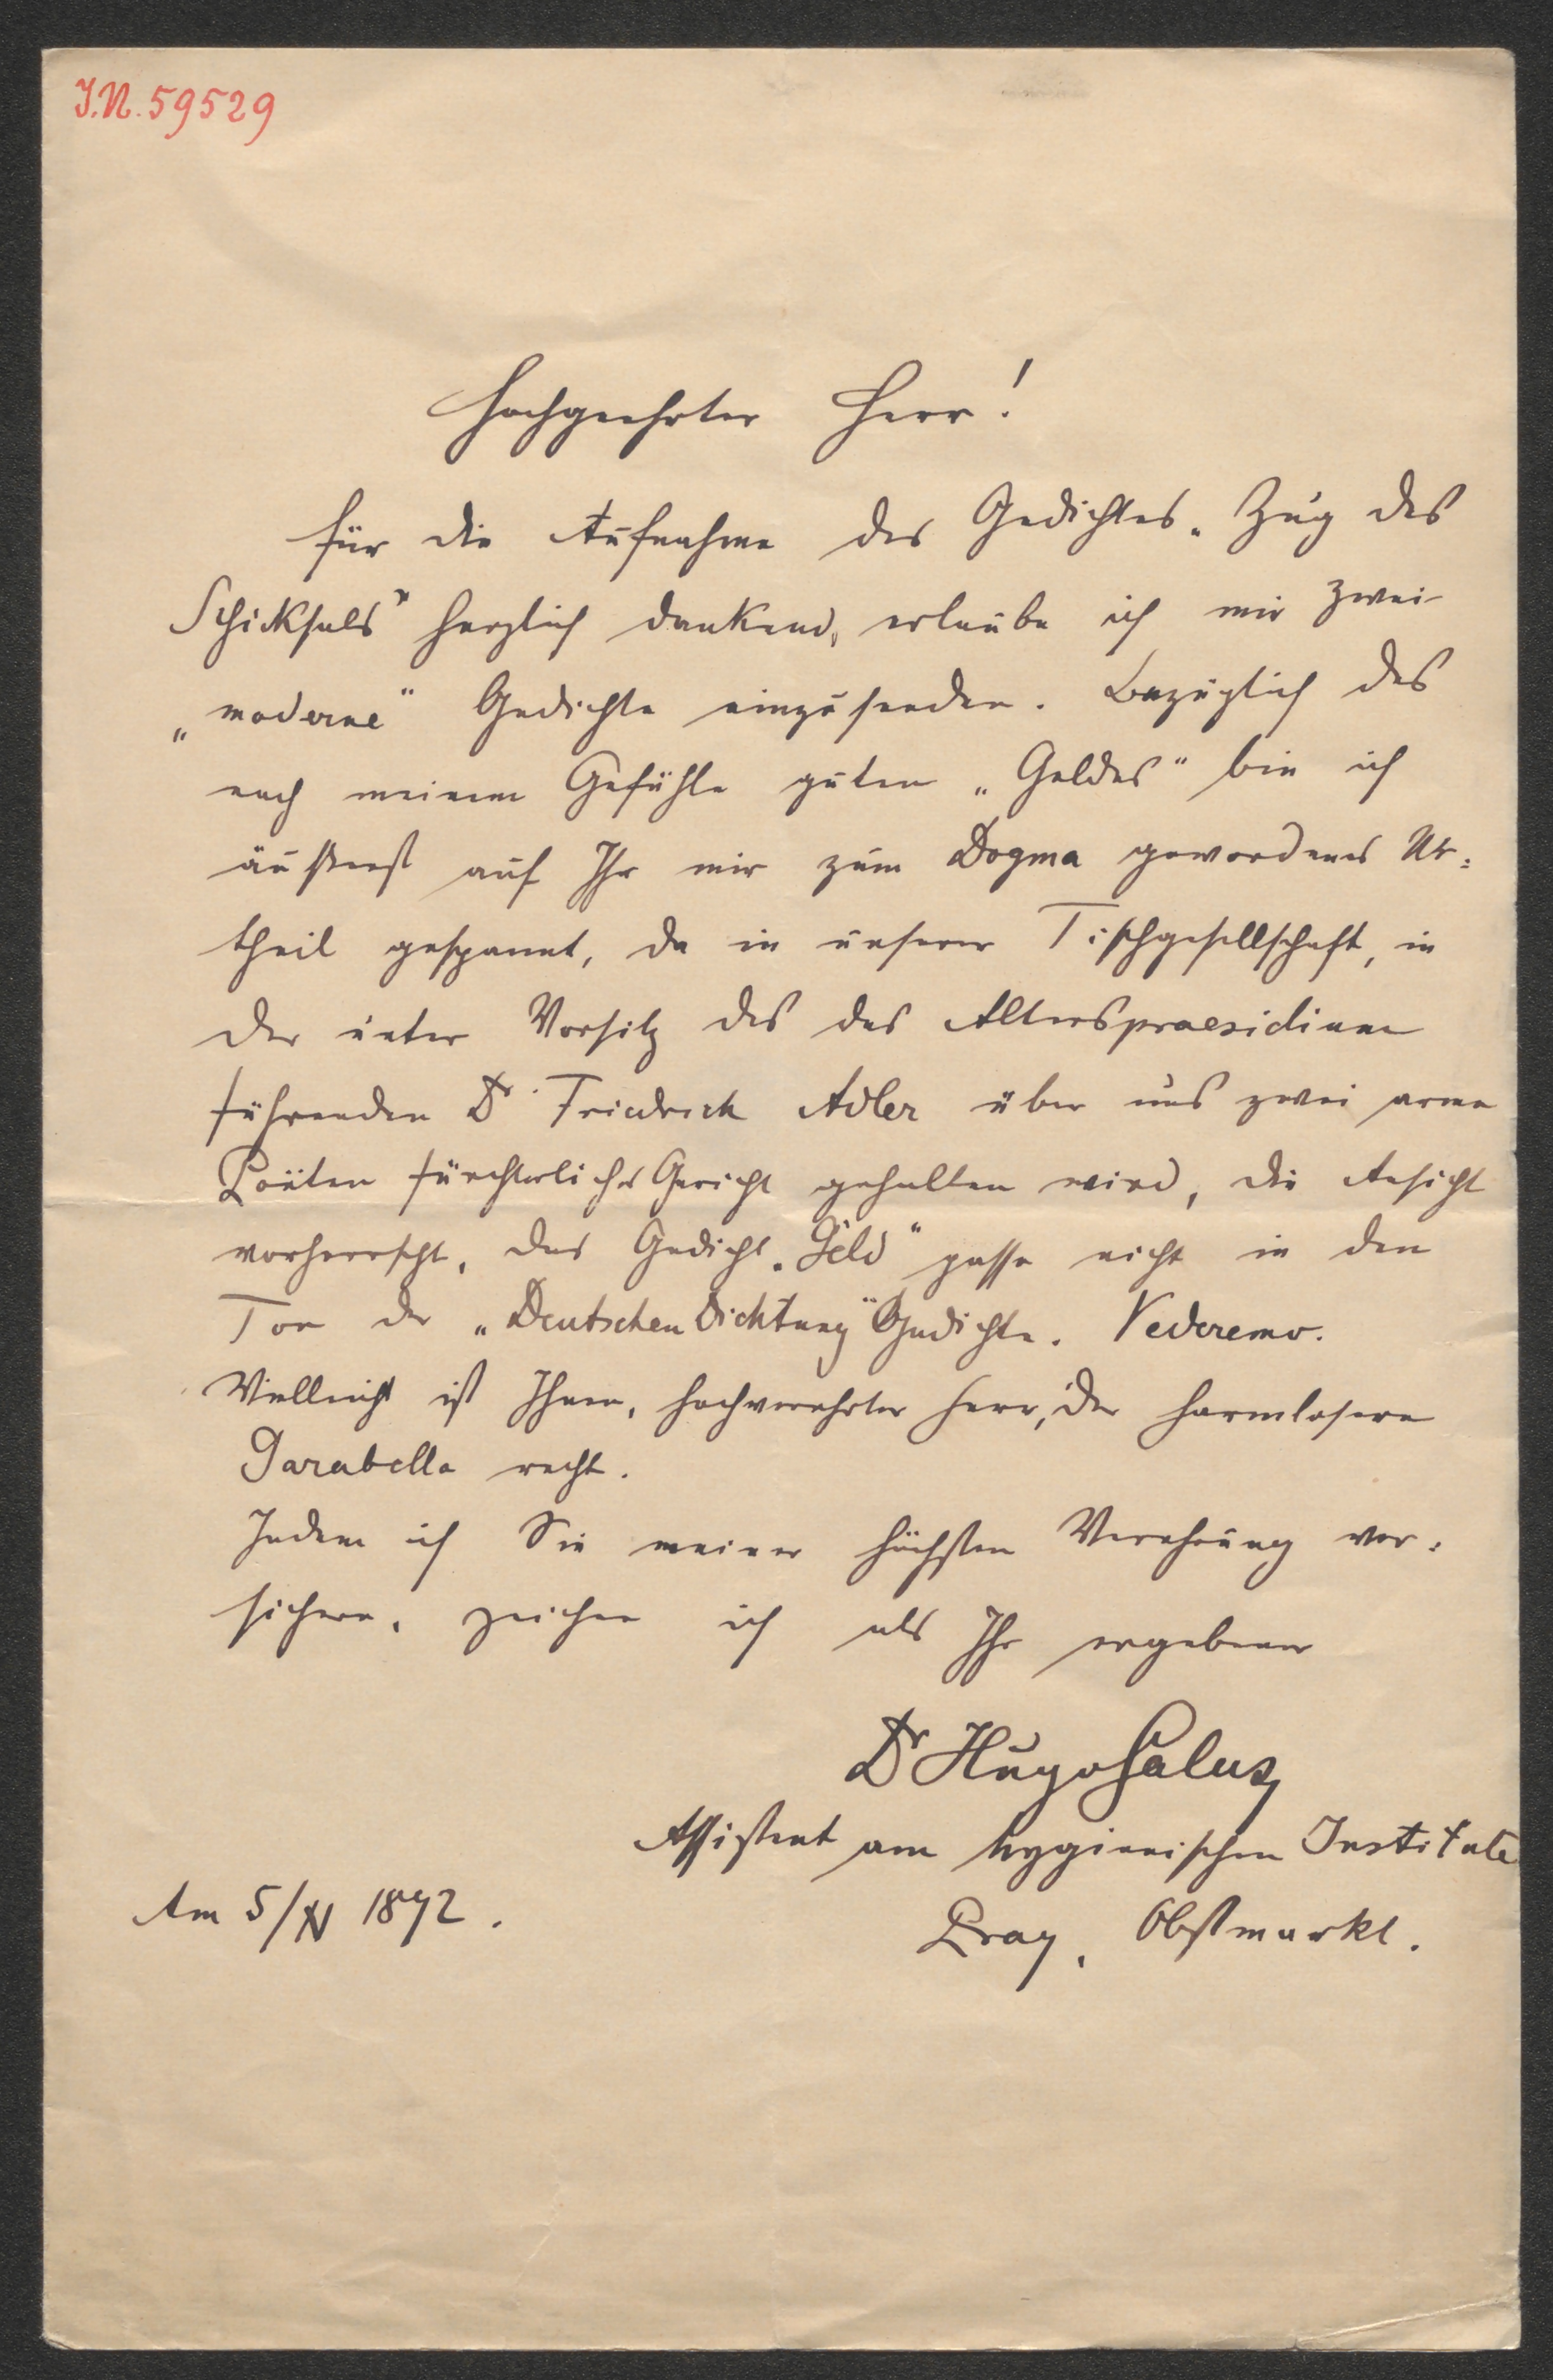 I.N. 59529
Hochgeehrter Herr!
Für die Aufnahme des Gedichtes „Zug des
Schicksals" herzlich dankend, erlaube ich mir zwei
„moderne" Gedichte einzusenden. Bezüglich des
nach meinem Gefühle guten „Geldes" bin ich
äußerst auf Ihr mir zum Dogma gewordenes Ur=
theil gespannt, da in unserer Tischgesellschaft, in
der unter Vorsitz des das Alterspraesidium
führenden Dr. Friedrich Adler über uns zwei arme
Poëten fürchterliches Gericht gehalten wird, die Ansicht
vorherrscht, das Gedicht „Geld" passe nicht in den
Ton der „Deutschen Dichtung" Gedichte. Vederemo.
Vielleicht ist Ihnen, hochverehrter Herr, der harmlosere
Parabella recht.
Indem ich Sie meiner höchsten Verehrung ver=
sichere, zeichne ich als Ihr ergebener
Dr Hugo Salus
Assistent am hygienischen Institute
Am 5/XI 1892.
Prag, Obstmarkt.